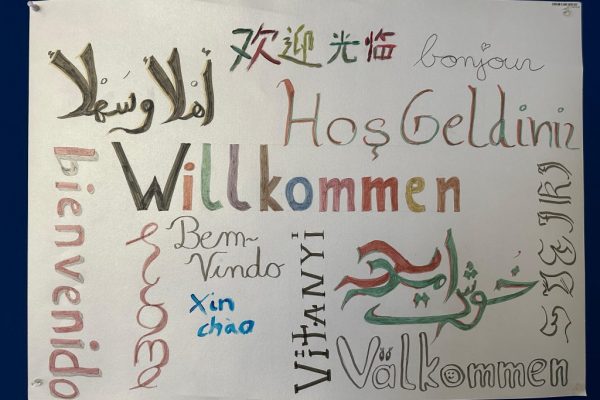 欢迎光临
bonjour
أهلا وسهلا
Hoş Geldiniz
Willkommen
bienvenido
Bem-
Vindo
Xin
chào
VitANYi
خوش آمدید
Välkommen